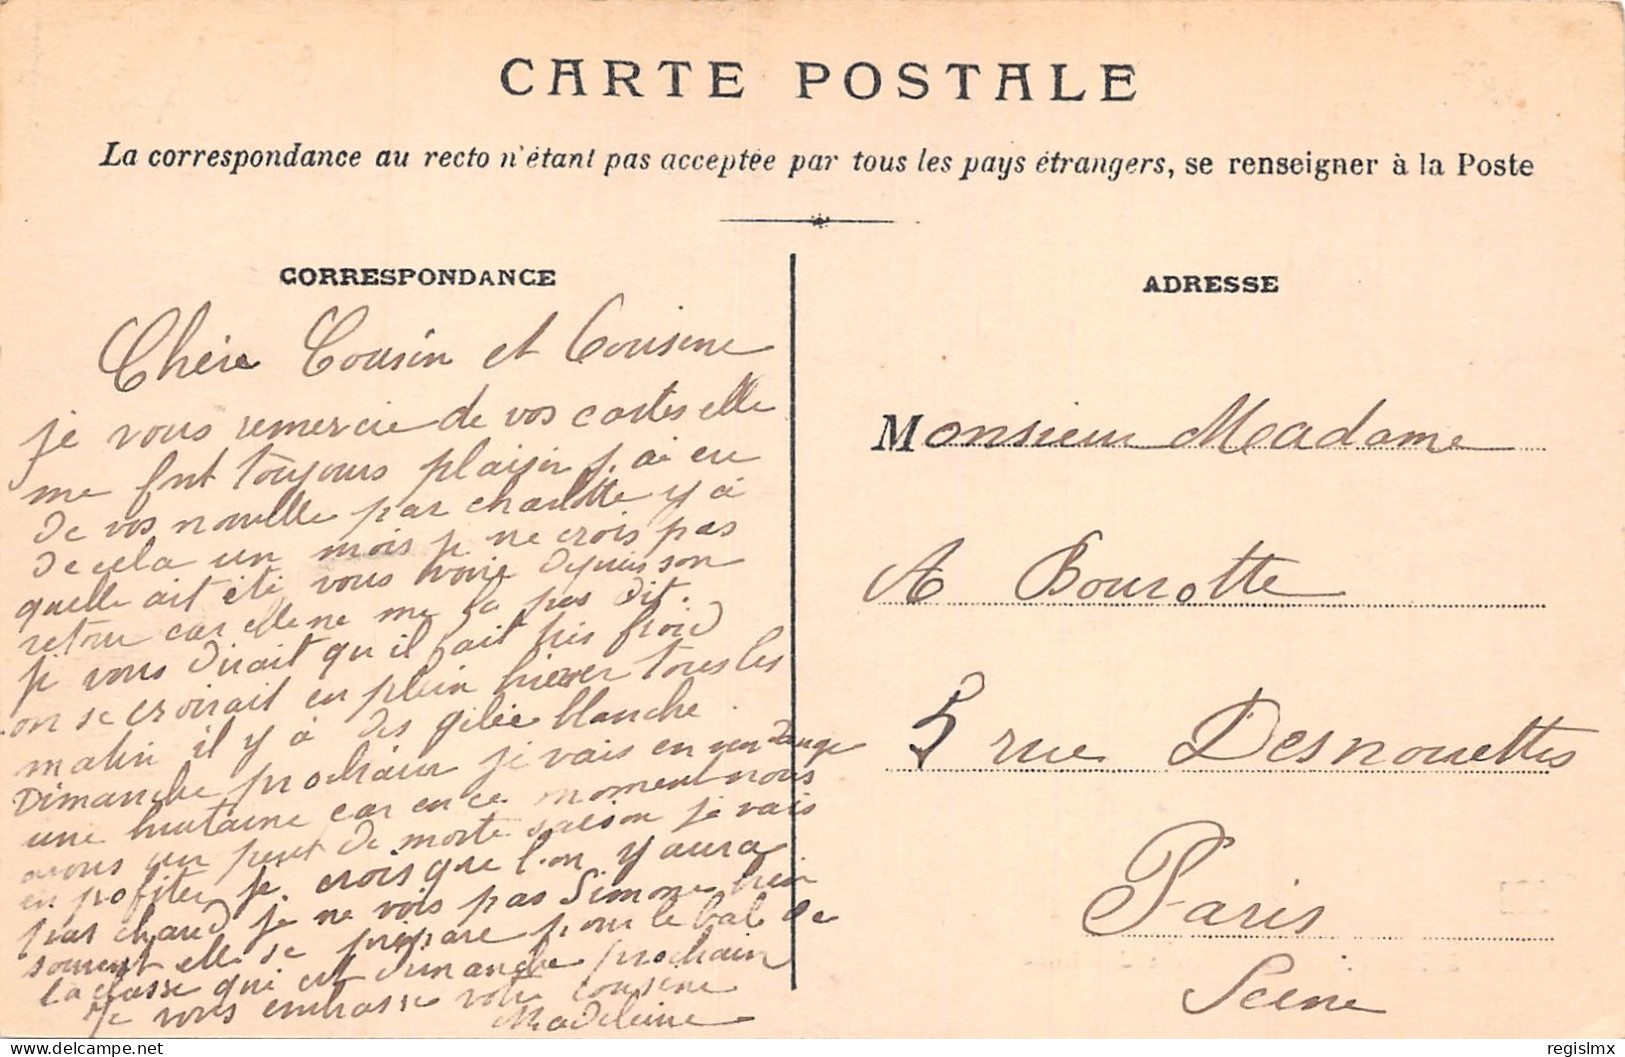 CARTE POSTALE
La correspondance au recto n'étant pas acceptée par tous les pays étrangers, se renseigner à la Poste
CORRESPONDANCE
Chère Cousin et Cousine
je vous remercie de vos cartes elle
me font toujours plaisir j'ai eu
de vos nouvelle par charlotte y a
de cela un mois je ne crois pas
quelle ait été vous voire depuis son
retour car elle ne me la pas dit.
je vous dirait qu il fait très froid
on se croirait en plein hiver tous les
matin il y à des gelée blanche.
Dimanche prochain je vais en vendange
une huitaine car en ce moment nous
avons un peut de morte saison je vais
en profiter je crois que l'on y aura
pas chaud je ne vois pas Simone bien
souvent elle se prepare pour le bal de
la classe qui est dimanche prochain
Je vous embrasse votre cousine
Madeleine
ADRESSE
Monsieur Madame
A Bourotte
5 rue Desnouettes
Paris
Seine
delcampe.net
regislmx